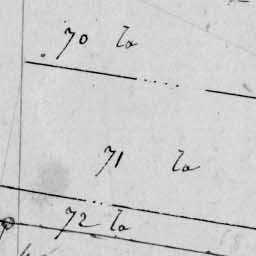 70 la
71 la
72 la